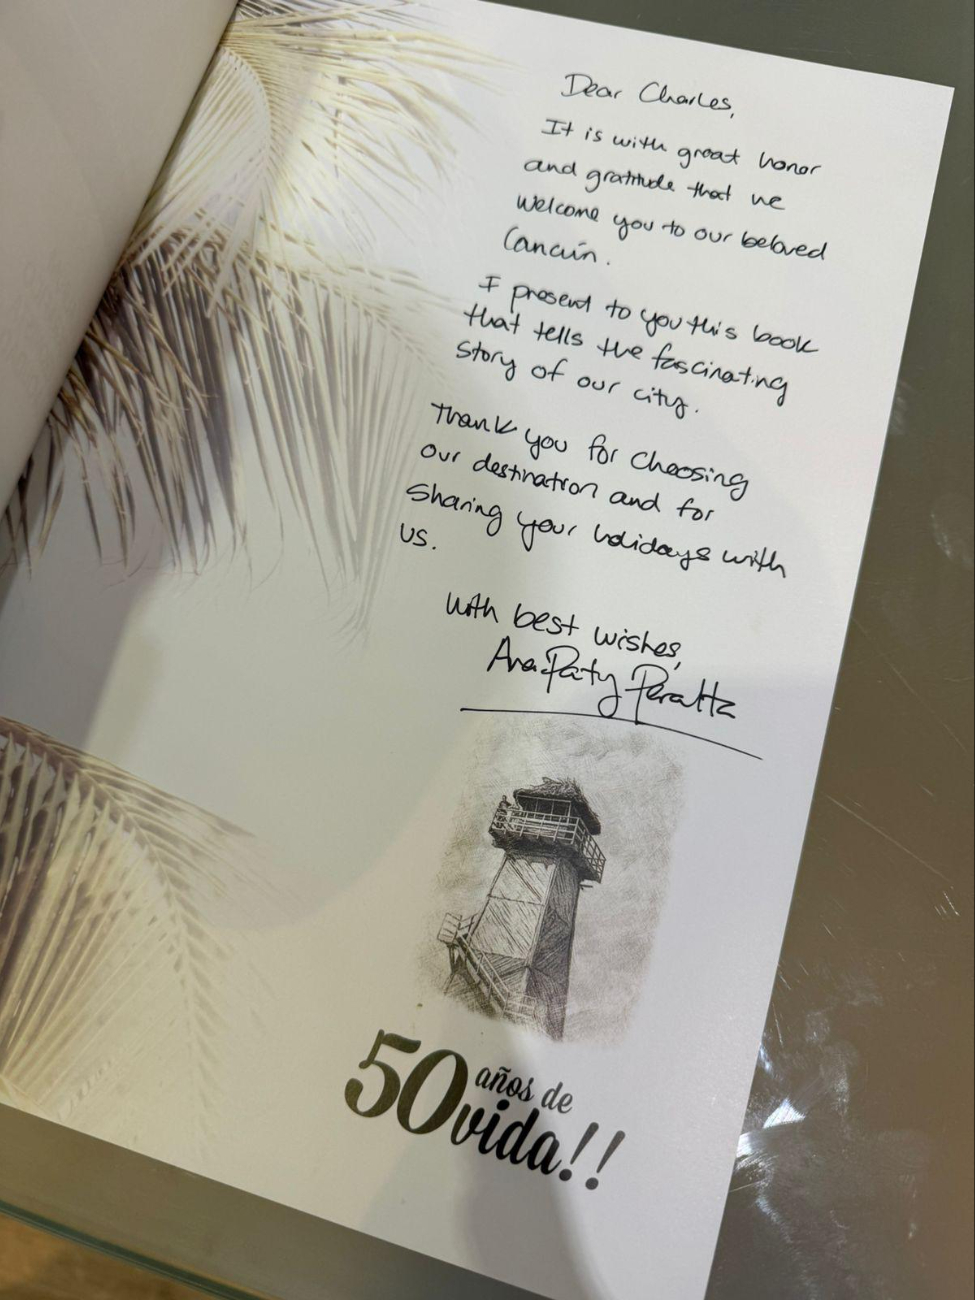 Dear Charles,
It is with great honor
and gratitude that we
welcome you to our beloved
Cancún.
I present to you this book
that tells the fascinating
story of our city.
Thank you for choosing
our destination and for
sharing your holidays with
us.
With best wishes,
Ana Paty Peralta
50 años de
vida!!